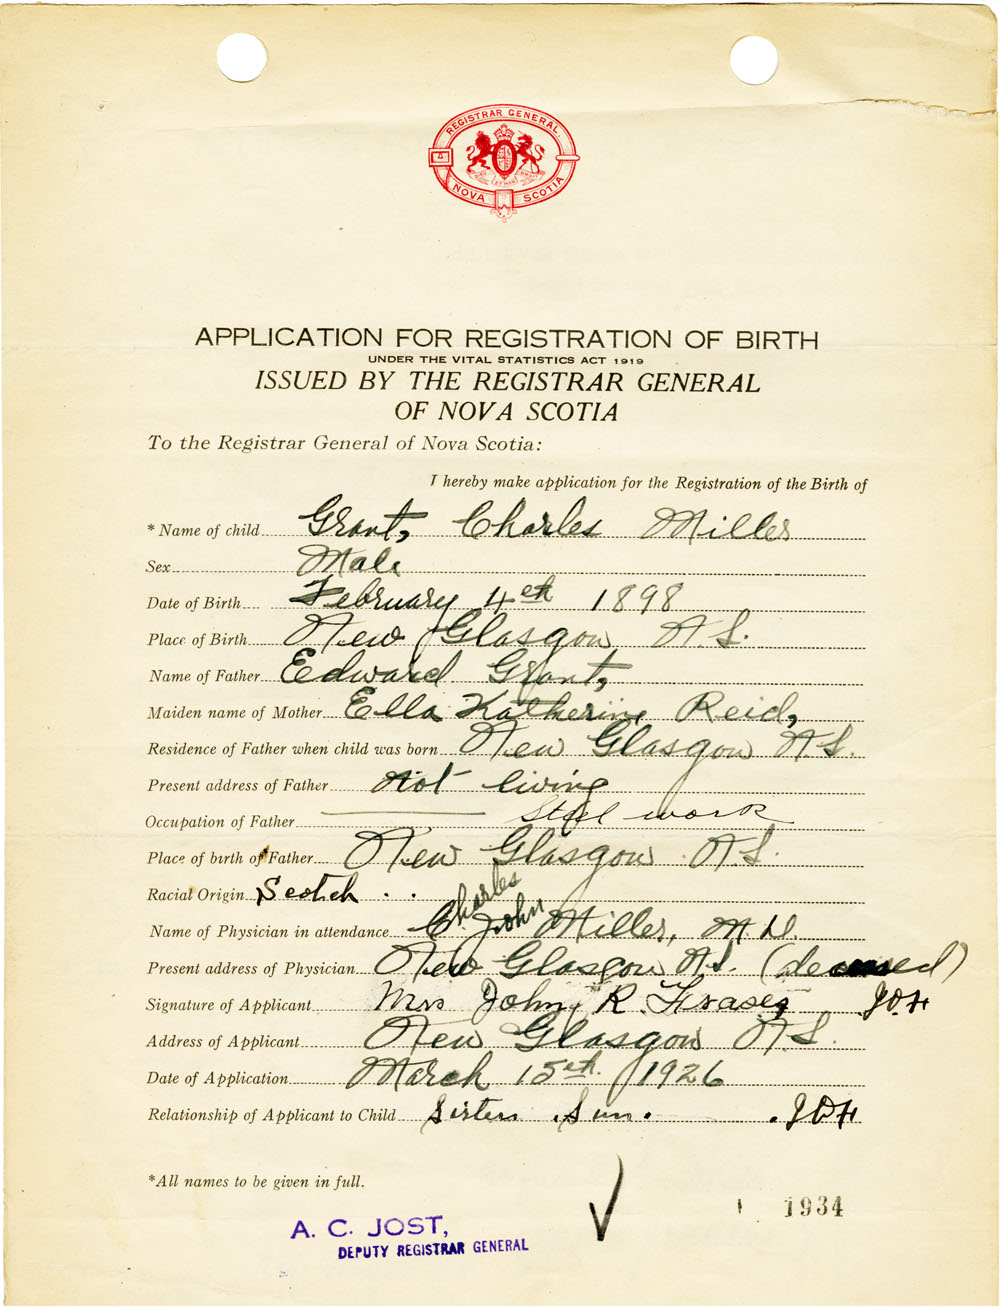 REGISTRAR GENERAL
NOVA SCOTIA
APPLICATION FOR REGISTRATION OF BIRTH
UNDER THE VITAL STATISTICS ACT 1919
ISSUED BY THE REGISTRAR GENERAL
OF NOVA SCOTIA
To the Registrar General of Nova Scotia:
I hereby make application for the Registration of the Birth of
* Name of child Grant, Charles Miller
Sex Male
Date of Birth February 4th 1898
Place of Birth New Glasgow N.S.
Name of Father Edward Grant,
Maiden name of Mother Ella Katherine Reid,
Residence of Father when child was born New Glasgow N.S.
Present address of Father Not living
Occupation of Father Steel work
Place of birth of Father New Glasgow N.S.
Racial Origin Scotch
Charles
Name of Physician in attendance C. John Miller, M.D.
Present address of Physician New Glasgow N.S. (deceased)
Signature of Applicant Mrs John R. Fraser
Address of Applicant New Glasgow N.S.
Date of Application March 15th 1926
Relationship of Applicant to Child Sisters Sun.
*All names to be given in full.
1934
A. C. JOST,
DEPUTY REGISTRAR GENERAL